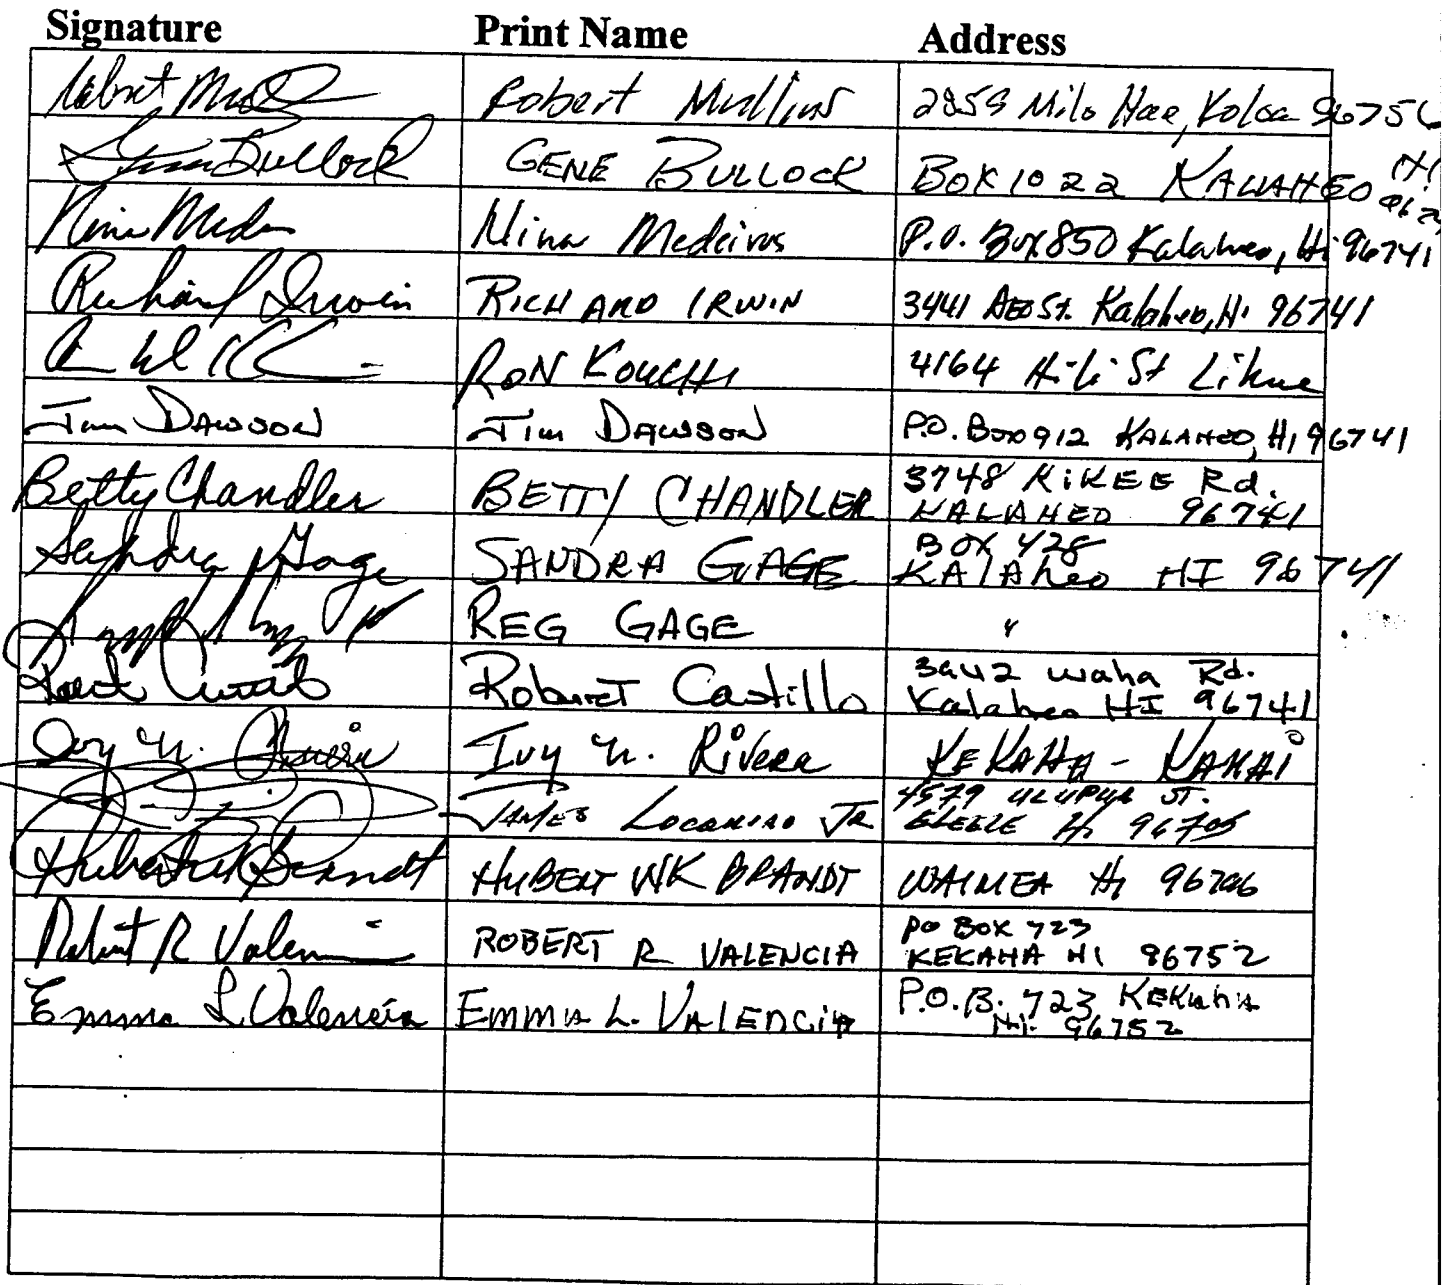 Signature Print Name Address
Robert Mullins 2859 Milo Hae, Koloa 96756
Gene Bullock GENE BULLOCK BOX 1022 KALAHEO HI
Nina Medeiros P.O. Box 850 Kalaheo, Hi 96741
Richard Irwin RICHARD IRWIN 3441 AEO St. Kalaheo, Hi 96741
RON KOUCHI 4164 Hili St Lihue
Jim DAWSON Jim DAWSON P.O. Box 912 KALAHEO, HI 96741
Betty Chandler BETTY CHANDLER 3748 KIKEE Rd.
KALAHEO 96741
Sandra Gage SANDRA GAGE BOX 428
KALAheo HI 96741
REG GAGE "
Robert Castillo 3442 waha Rd.
Kalaheo HI 96741
Ivy N. Rivera Ivy N. Rivera KEKAHA - KAUAI
JAMES LOCAMIRO JR 4579 ULUPUA ST.
ELEELE Hi 96705
Hubert WK Brandt HUBERT WK BRANDT WAIMEA Hi 96796
Robert R Valencia ROBERT R VALENCIA PO BOX 723
KEKAHA HI 96752
Emma L. Valencia EMMA L. VALENCIA P.O.B. 723 KEKaha
HI. 96752